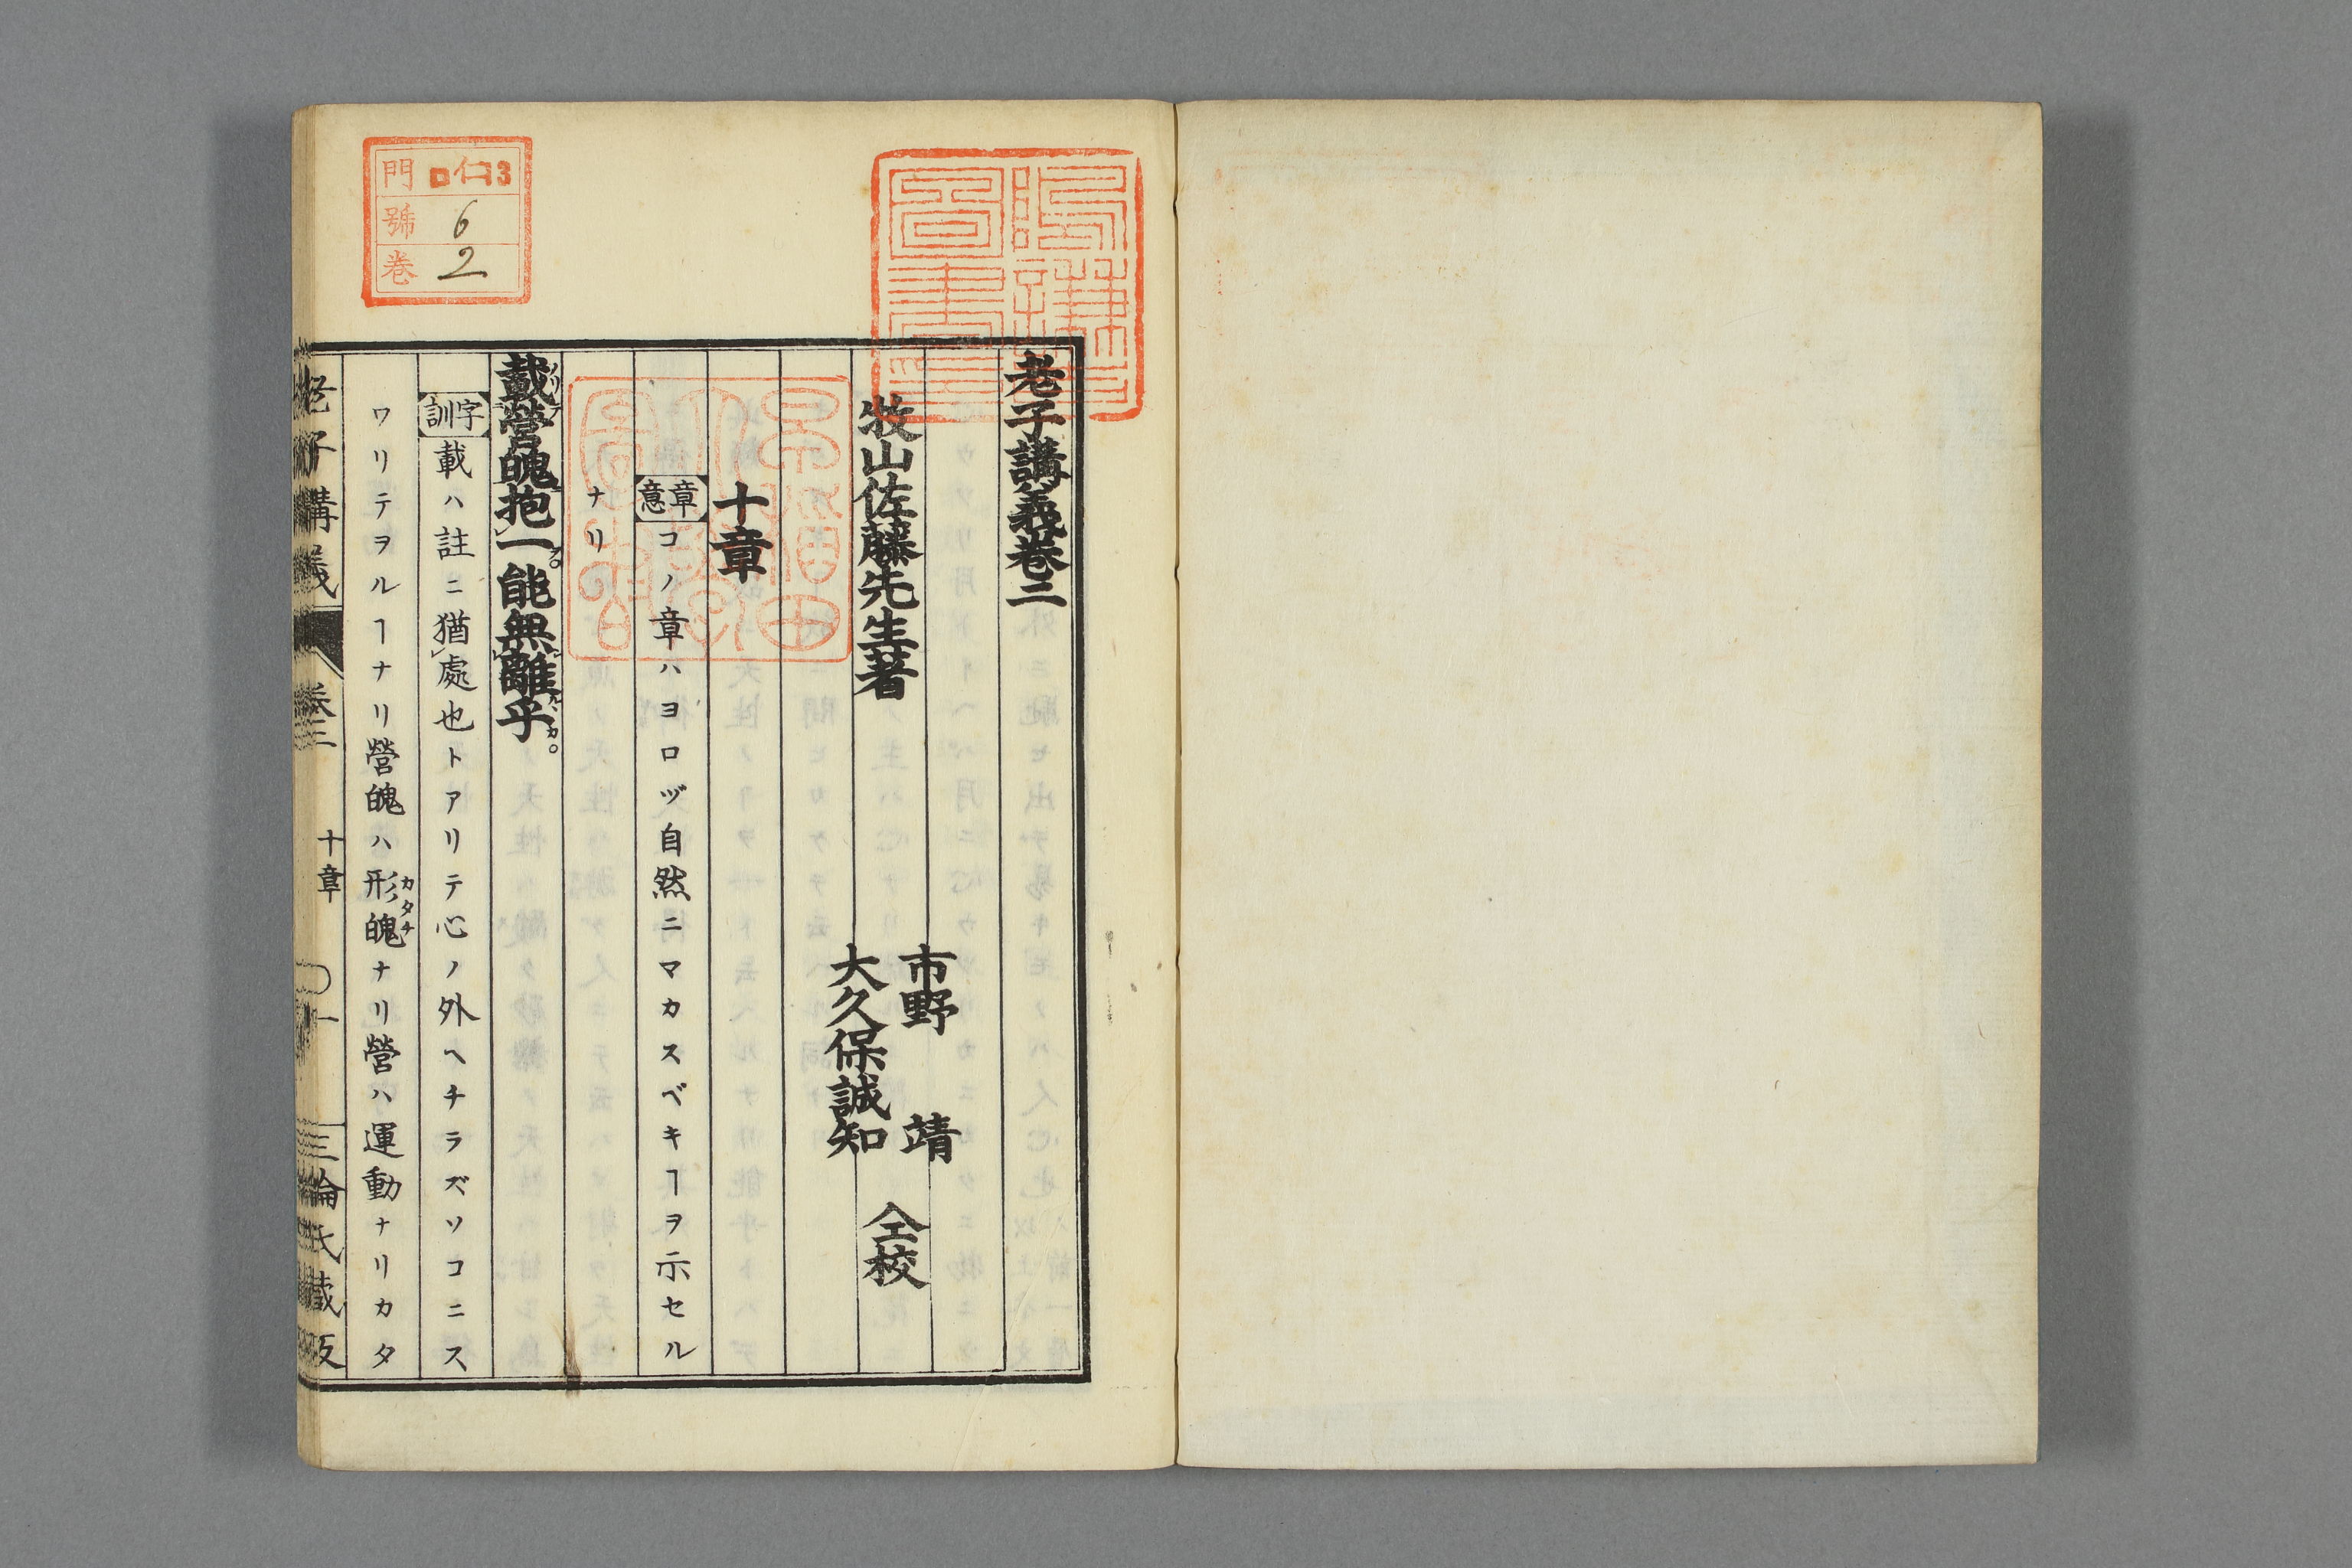 老子講義卷二
牧山佐藤先生著
市野 靖
大久保誠知
仝校
十章
章意 コノ章ハヨロヅ自然ニマカスベキヿヲ示セル
ナリ
載營魄抱一能無離乎
字訓 載ハ註ニ猶處也トアリテ心ノ外ヘチラズソコニス
ワリテヲルヿナリ營魄ハ形魄ナリ營ハ運動ナリカタ
カタチ
老子講義 卷二 十章 〇一 三輪氏藏版
門 仁 3
號 6
卷 2